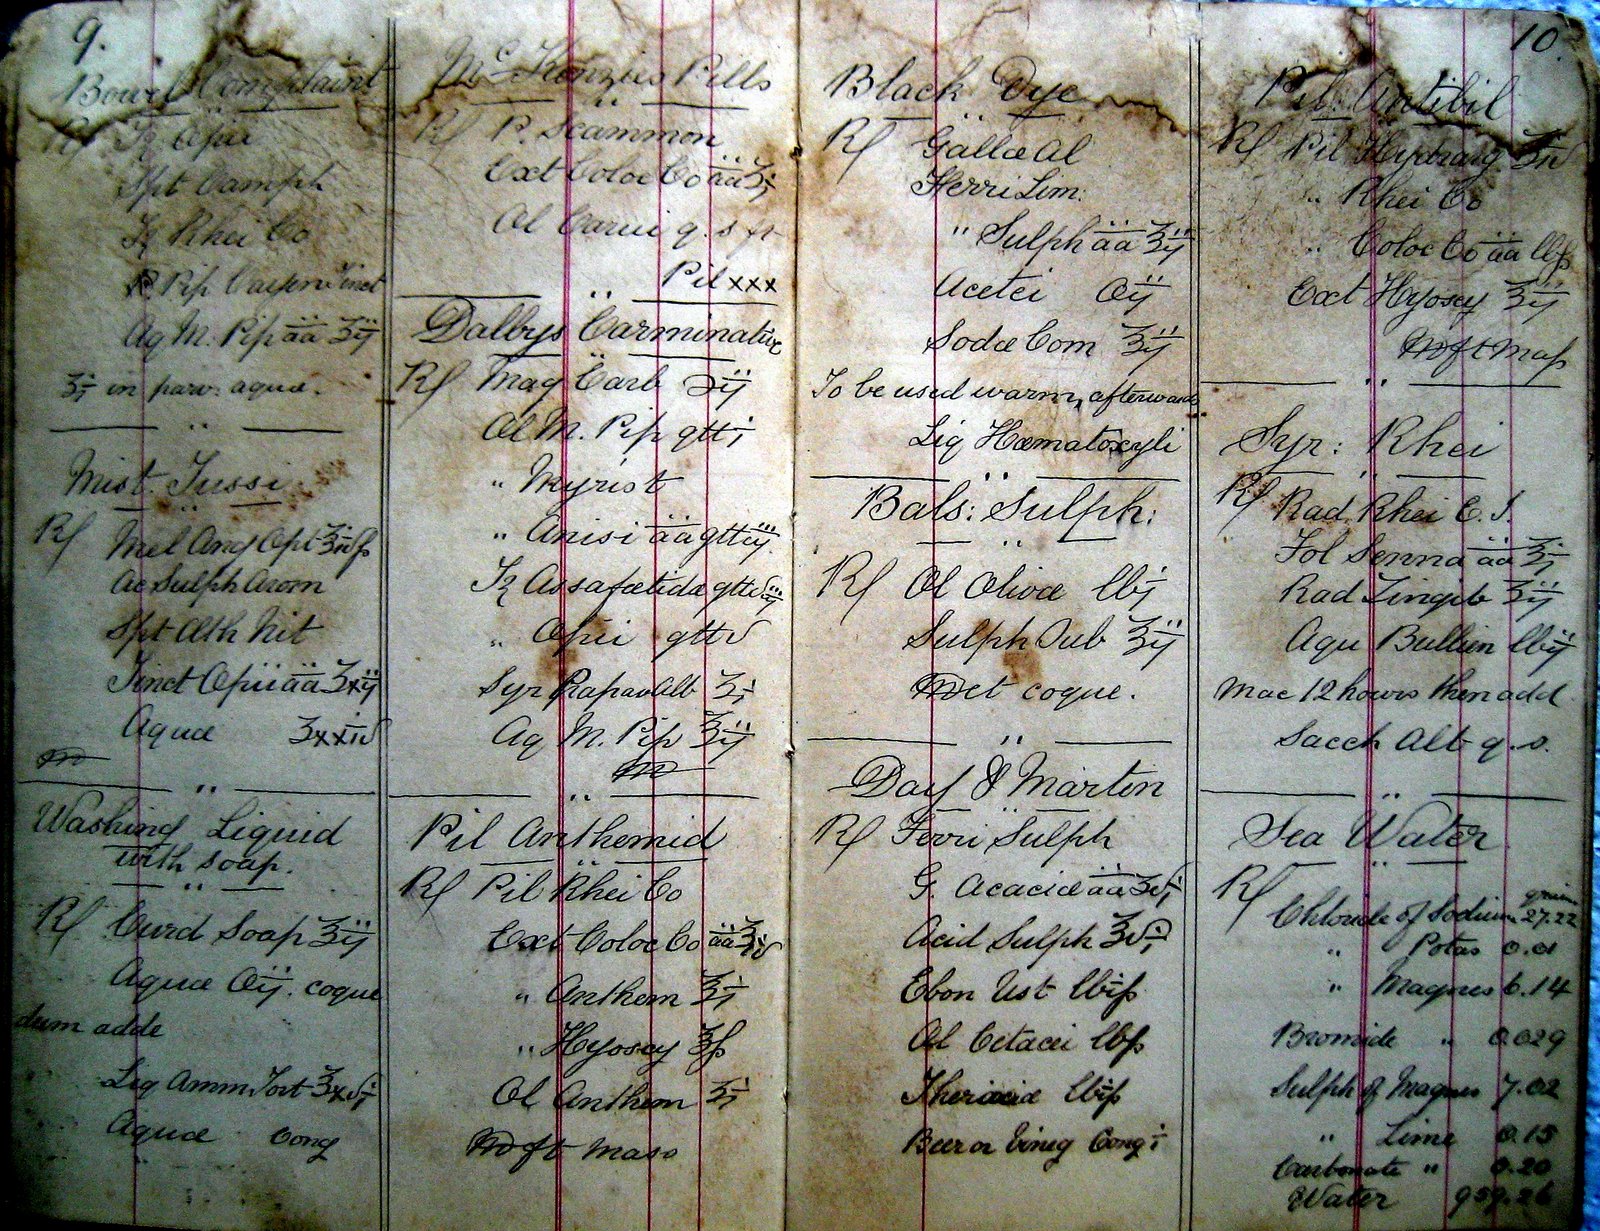 9.
Bowel Complaint
Rf Tr Opii
Spt Camph
Tr Rhei Co
Aq M. Pip āā ℥ij
in parv. aquæ.
Mist Tussi
Rf Mel Ang Opt
Ac Sulph Arom
Spt Æth Nit
Tinct Opii āā ʒxij
Aquæ
M
Washing Liquid
with soap.
Rf Curd Soap ℥ij
Aquæ Oij. coque
dum adde
Liq Amm Fort
Aquæ Cong
McKenzies Pills
Rf P. Scammon
Ext Coloc Co āā ʒj
Ol Carui q. s ft
Pil xxx
Dalbys Carminative
Rf Mag Carb ʒij
Ol M. Pip gtt j
" Myrist
" Anisi āā gtt iij
Tr Assafœtidæ gtt
" Opii gtt v
Syr Papav Alb ʒj
Aq M. Pip ℥ij
M
Pil Anthemid
Rf Pil Rhei Co
Ext Coloc Co āā
" Anthem ʒj
" Hyoscy ʒß
Ol Anthem ʒj
M ft Mass
10
Black Dye
Rf Gallæ Al
Ferri Lim:
" Sulph āā ℥ij
Aceti Oij
Sodæ Com ℥ij
To be used warm, afterwards
Liq Hæmatoxyli
Bals: Sulph:
Rf Ol Olivæ lbj
Sulph Sub ℥ij
M et coque.
Day & Martin
Rf Ferri Sulph
G. Acaciæ āā
Acid Sulph
Ebon Ust lbiß
Ol Cetacei lbß
Theriacæ lbiß
Beer or Vineg Cong i
Pil: Antibil
Rf Pil Hydrarg
" Rhei Co
" Coloc Co āā lbß
Ext Hyoscy ℥ij
M ft Mass
Syr: Rhei
Rf Rad Rhei E. I.
Fol Senna āā ℥j
Rad Zingib ʒij
Aqu Bullien lbij
Mac 12 hours then add
Sacch Alb q. s.
Sea Water
Rf grains
Chloride of Sodium 27.22
" Potas 0.01
" Magnes 6.14
Bromide " 0.029
Sulph of Magnes 7.02
" Lime 0.15
Carbonate " 0.20
Water 959.26